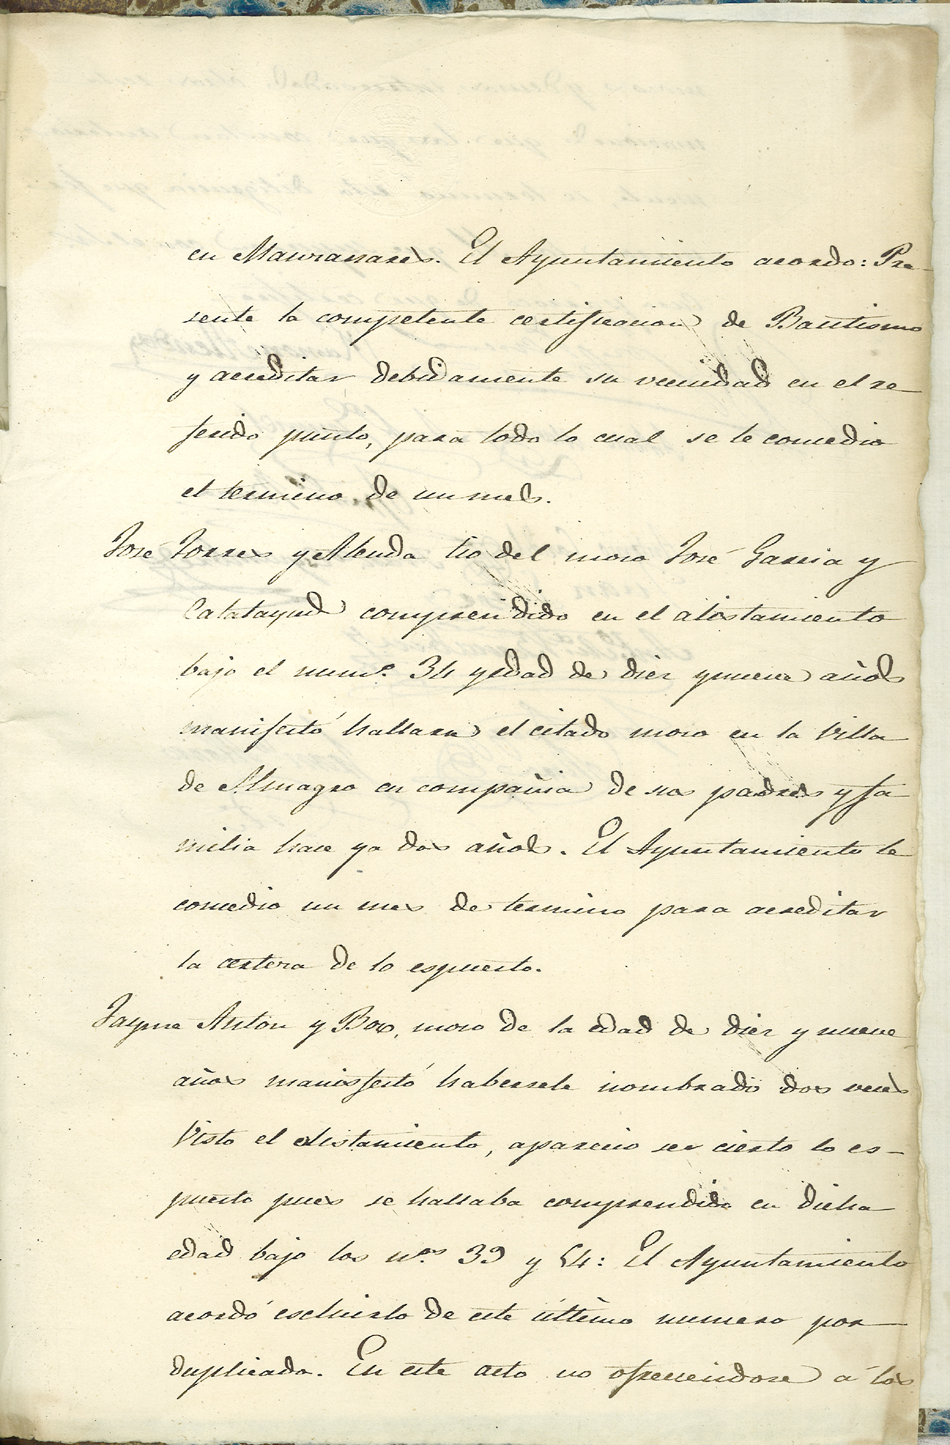 en Manzanares. El Ayuntamiento acordo: Pre-
sente la competente certificacion de Bautismo
y acreditar debidamente su vecindad en el re-
ferido punto, para todo lo cual se le concedio
el termino de un mes.
José Torres y Abuda tio del mozo José Garcia y
Calatayud comprendido en el alistamiento
bajo el numº. 34 y edad de diez y nueve años
manifestó hallarse el citado mozo en la Villa
de Almagro en compañia de sus padres y fa
milia hace ya dos años. El Ayuntamiento le
concedio un mes de termino para acreditar
la certeza de lo espuesto.
Jayme Anton y Boz, mozo de la edad de diez y nueve
años manifestó habersele nombrado dos veces
Visto el alistamiento, aparecio ser cierto lo es-
puesto pues se hallaba comprendido en dicha
edad bajo los nos. 39 y 54: El Ayuntamiento
acordó escluirlo de este último numero por
duplicado. En este acto no ofreciendose á los